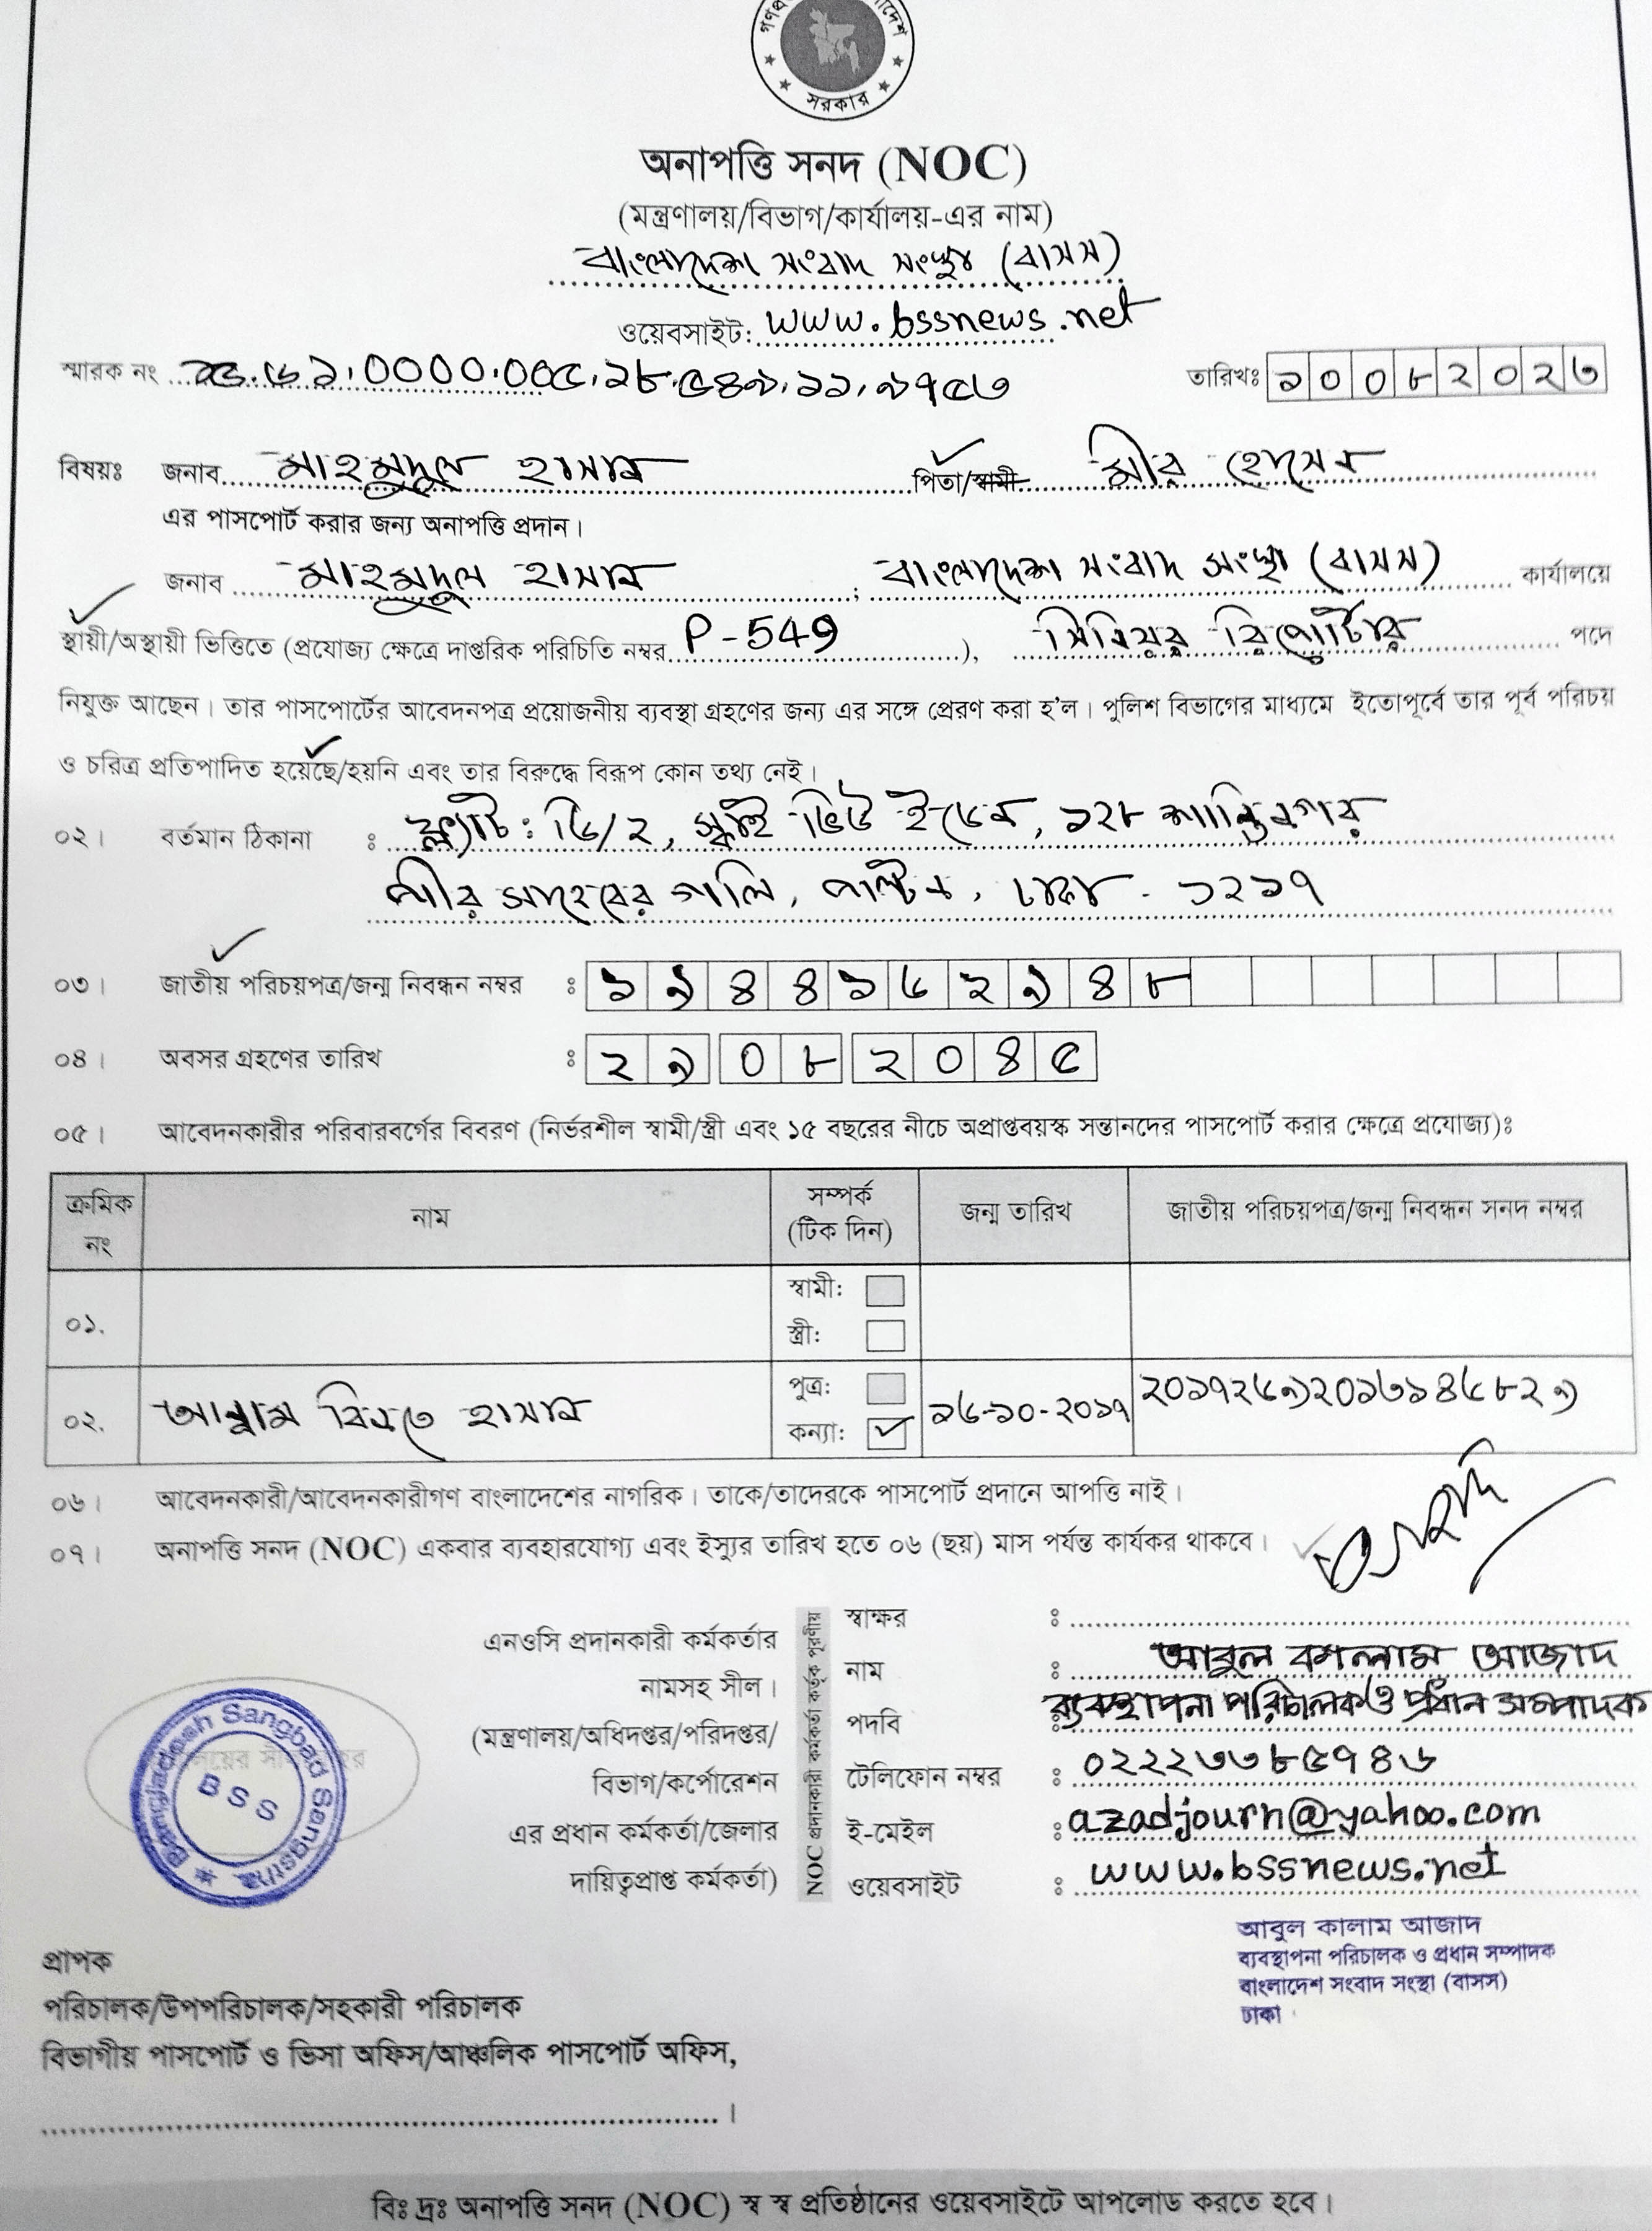 সরকার
অনাপত্তি সনদ (NOC)
(মন্ত্রণালয়/বিভাগ/কার্যালয়-এর নাম)
বাংলাদেশ সংবাদ সংস্থা (বাসস)
ওয়েবসাইট: www.bssnews.net
স্মারক নং
তারিখঃ ১০০৮২০২৩
বিষয়ঃ জনাব মাহমুদুল হাসান পিতা/স্বামী মীর হোসেন
এর পাসপোর্ট করার জন্য অনাপত্তি প্রদান।
জনাব মাহমুদুল হাসান ; বাংলাদেশ সংবাদ সংস্থা (বাসস) কার্যালয়ে
স্থায়ী/অস্থায়ী ভিত্তিতে (প্রযোজ্য ক্ষেত্রে দাপ্তরিক পরিচিতি নম্বর P-549), সিনিয়র রিপোর্টার পদে
নিযুক্ত আছেন। তার পাসপোর্টের আবেদনপত্র প্রয়োজনীয় ব্যবস্থা গ্রহণের জন্য এর সঙ্গে প্রেরণ করা হ'ল। পুলিশ বিভাগের মাধ্যমে ইতোপূর্বে তার পূর্ব পরিচয়
ও চরিত্র প্রতিপাদিত হয়েছে/হয়নি এবং তার বিরুদ্ধে বিরূপ কোন তথ্য নেই।
০২। বর্তমান ঠিকানা : ফ্ল্যাট: ডি/২, স্কাই ভিউ ইডেন, ১২৮ শান্তিনগর
পীর সাহেবের গলি, পল্টন, ঢাকা - ১২১৭
০৩। জাতীয় পরিচয়পত্র/জন্ম নিবন্ধন নম্বর : ১৯৪৪১৬২৯৪৮
০৪। অবসর গ্রহণের তারিখ : ২৯০৮২০৪৫
০৫। আবেদনকারীর পরিবারবর্গের বিবরণ (নির্ভরশীল স্বামী/স্ত্রী এবং ১৫ বছরের নীচে অপ্রাপ্তবয়স্ক সন্তানদের পাসপোর্ট করার ক্ষেত্রে প্রযোজ্য)ঃ
ক্রমিক নং নাম সম্পর্ক (টিক দিন) জন্ম তারিখ জাতীয় পরিচয়পত্র/জন্ম নিবন্ধন সনদ নম্বর
০১. স্বামী:
স্ত্রী:
পুত্র:
০২. বিনতে হাসান কন্যা: ১৬-১০-২০১৭
০৬। আবেদনকারী/আবেদনকারীগণ বাংলাদেশের নাগরিক। তাকে/তাদেরকে পাসপোর্ট প্রদানে আপত্তি নাই।
০৭। অনাপত্তি সনদ (NOC) একবার ব্যবহারযোগ্য এবং ইস্যুর তারিখ হতে ০৬ (ছয়) মাস পর্যন্ত কার্যকর থাকবে।
এনওসি প্রদানকারী কর্মকর্তার
নামসহ সীল।
(মন্ত্রণালয়/অধিদপ্তর/পরিদপ্তর/
বিভাগ/কর্পোরেশন
এর প্রধান কর্মকর্তা/জেলার
দায়িত্বপ্রাপ্ত কর্মকর্তা)
NOC প্রদানকারী কর্মকর্তা কর্তৃক পূরণীয়
স্বাক্ষর :
নাম : আবুল কালাম আজাদ
পদবি : ব্যবস্থাপনা পরিচালক ও প্রধান সম্পাদক
টেলিফোন নম্বর : ০২২২৩৩৮৫৭৪৬
ই-মেইল : azadjourn@yahoo.com
ওয়েবসাইট : www.bssnews.net
Bangladesh Sangbad Sangstha
BSS
আবুল কালাম আজাদ
ব্যবস্থাপনা পরিচালক ও প্রধান সম্পাদক
বাংলাদেশ সংবাদ সংস্থা (বাসস)
ঢাকা
প্রাপক
পরিচালক/উপপরিচালক/সহকারী পরিচালক
বিভাগীয় পাসপোর্ট ও ভিসা অফিস/আঞ্চলিক পাসপোর্ট অফিস,
।
বিঃ দ্রঃ অনাপত্তি সনদ (NOC) স্ব স্ব প্রতিষ্ঠানের ওয়েবসাইটে আপলোড করতে হবে।